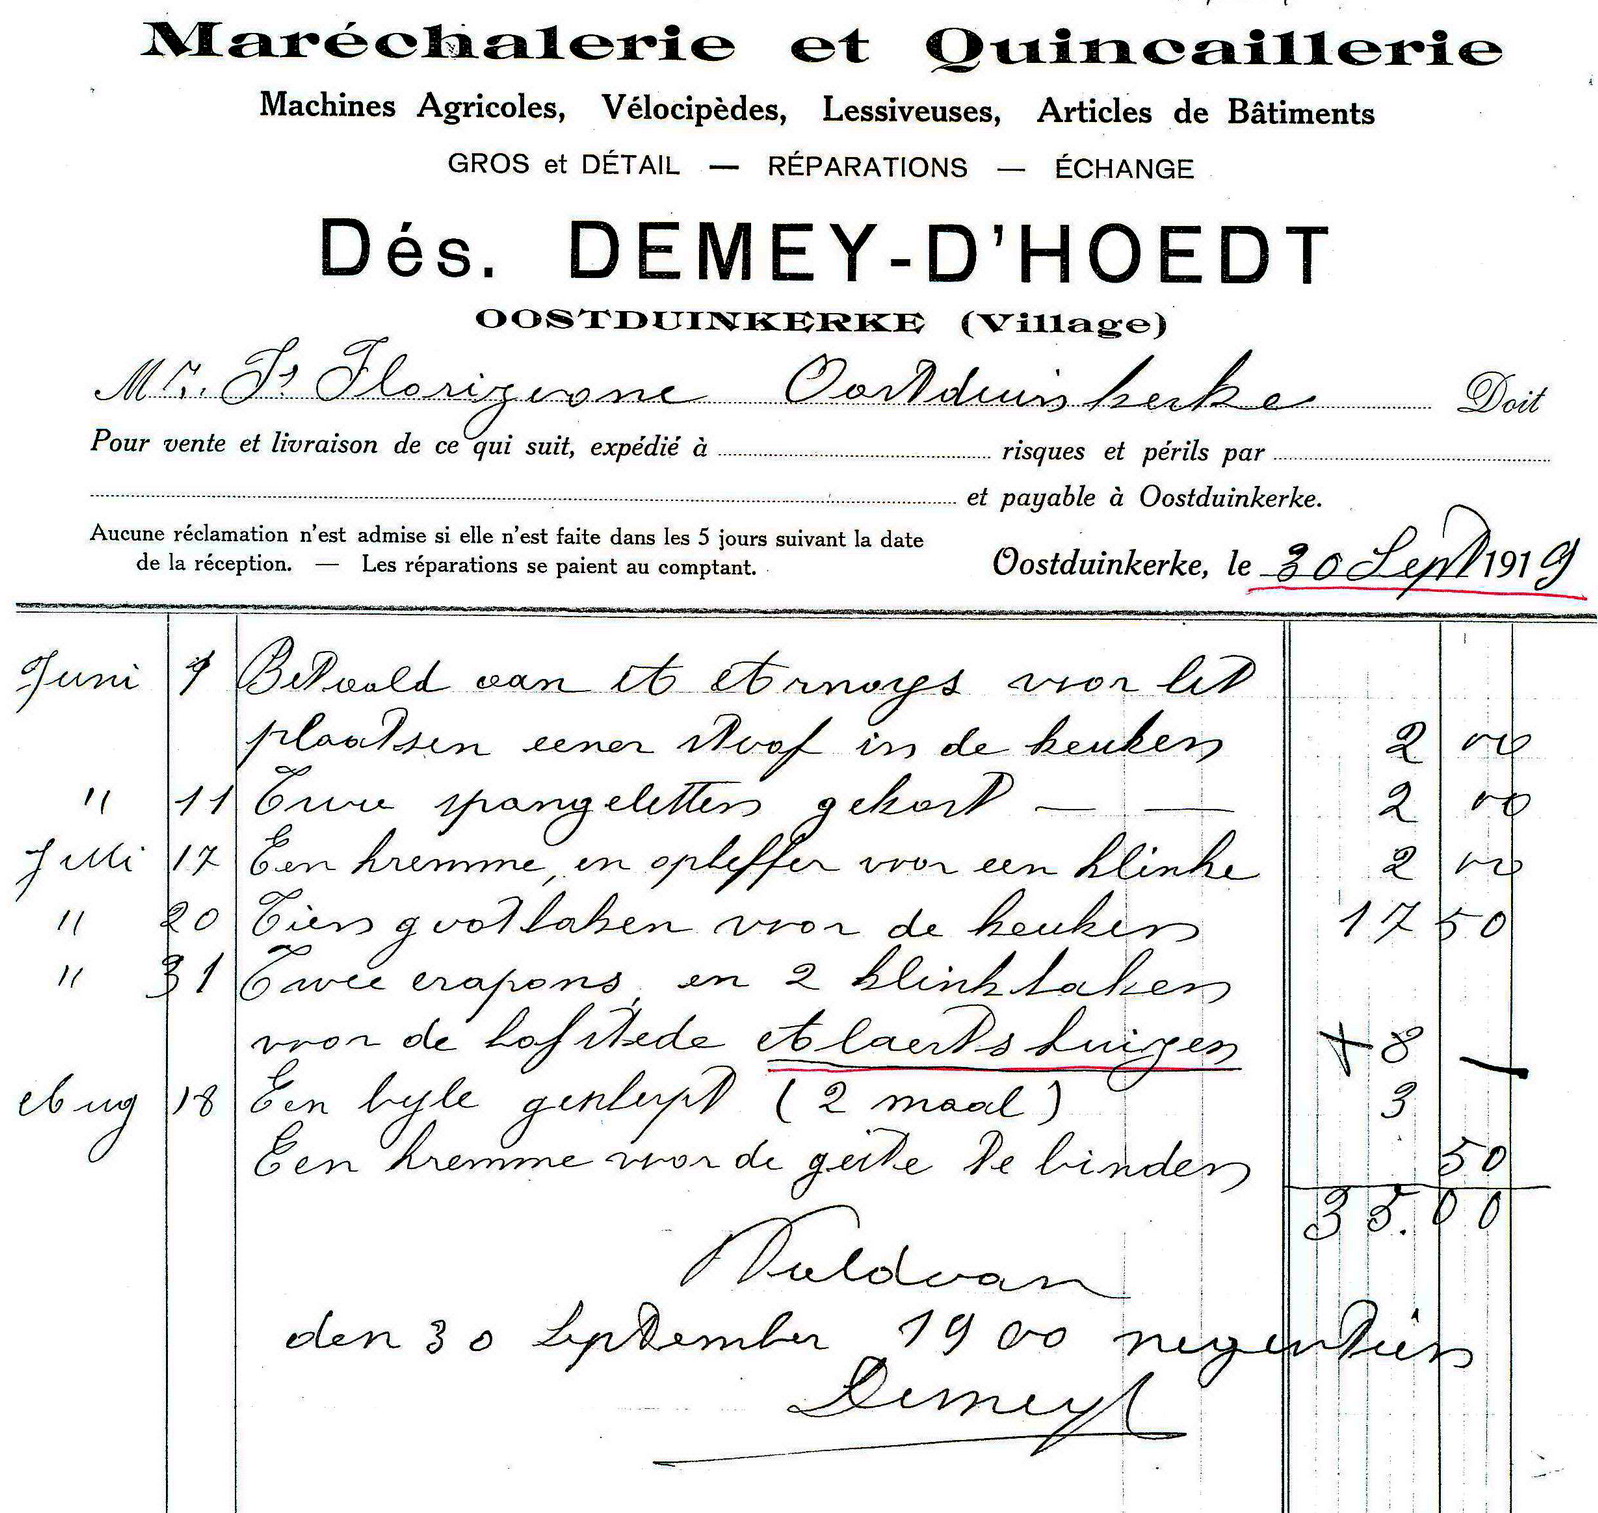 Maréchalerie et Quincaillerie
Machines Agricoles, Vélocipèdes, Lessiveuses, Articles de Bâtiments
GROS et DÉTAIL — RÉPARATIONS — ÉCHANGE
Dés. DEMEY-D'HOEDT
OOSTDUINKERKE (Village)
Mr. Florizoone Oostduinkerke Doit
Pour vente et livraison de ce qui suit, expédié à risques et périls par
et payable à Oostduinkerke.
Aucune réclamation n'est admise si elle n'est faite dans les 5 jours suivant la date
de la réception. — Les réparations se paient au comptant.
Oostduinkerke, le 30 Sept 1919
Juni 9 Betaald aan voor het
plaatsen eener stoof in de keuken 2 00
" 11 Twee spangeletten gekort — — 2 00
Juli 17 Een kremme, en opleffer voor een klinke 2 00
" 20 Tien goothaken voor de keuken 17 50
" 31 Twee crapons, en 2 klinkhaken
voor de hofstede Allaertshuizen + 8 —
Aug 18 Een byle geslept (2 maal) 3
Een kremme voor de geite te binden 50
35.00
Voldaan
den 30 September 1900 negentien
Demey